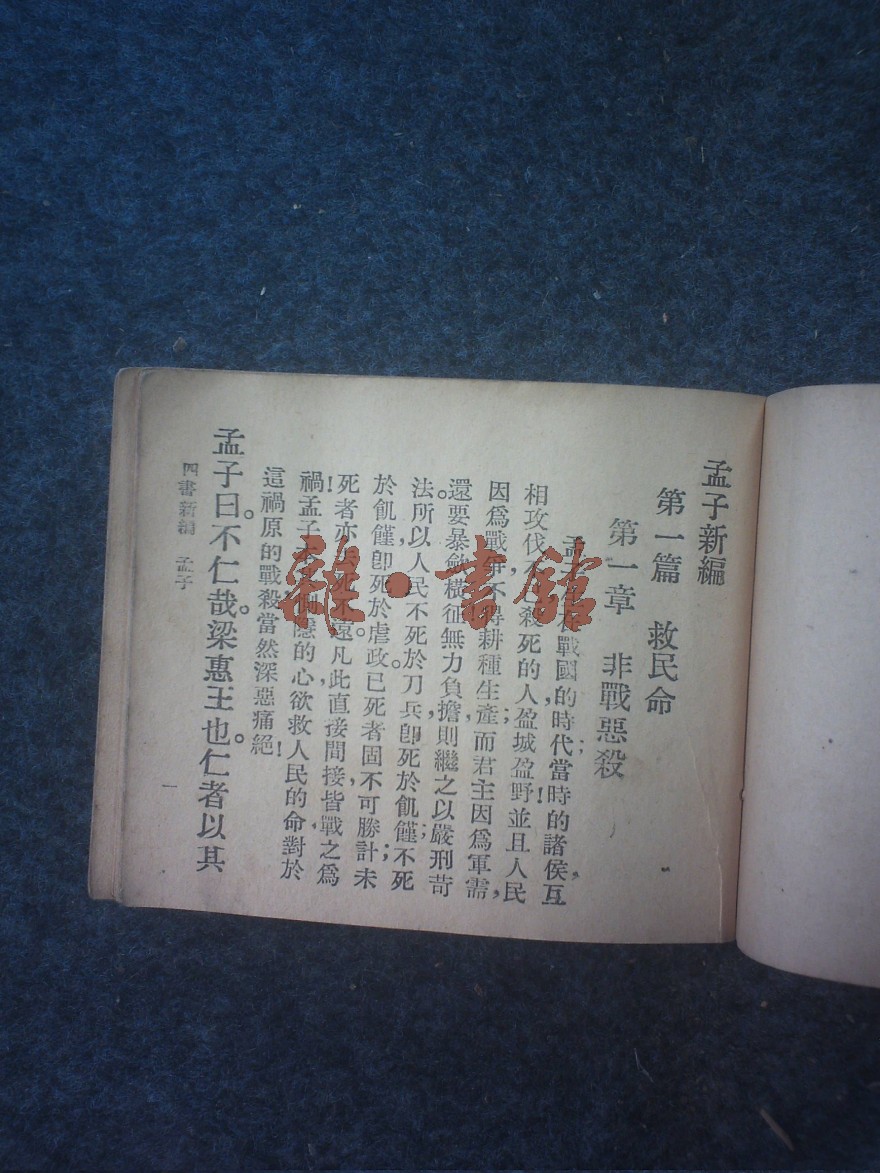 孟子新編
第一篇 救民命
第一章 非戰惡殺
孟子 戰國的時代;當時的諸侯,互
相攻伐, 殺死的人,盈城盈野!並且人民
因爲戰爭不得耕種生產;而君主因爲軍需,
還要暴斂橫征。無力負擔,則繼之以嚴刑苛
法。所以人民不死於刀兵,卽死於飢饉;不死
於飢饉,卽死於虐政。已死者固不可勝計;未
死者亦 死不遠。凡此直接間接,皆戰之爲
禍!孟子 隱的心,欲救人民的命,對於
這禍原的戰殺,當然深惡痛絕!
孟子曰。不仁哉。梁惠王也。仁者以其
四書新編 孟子
一
龍·書館